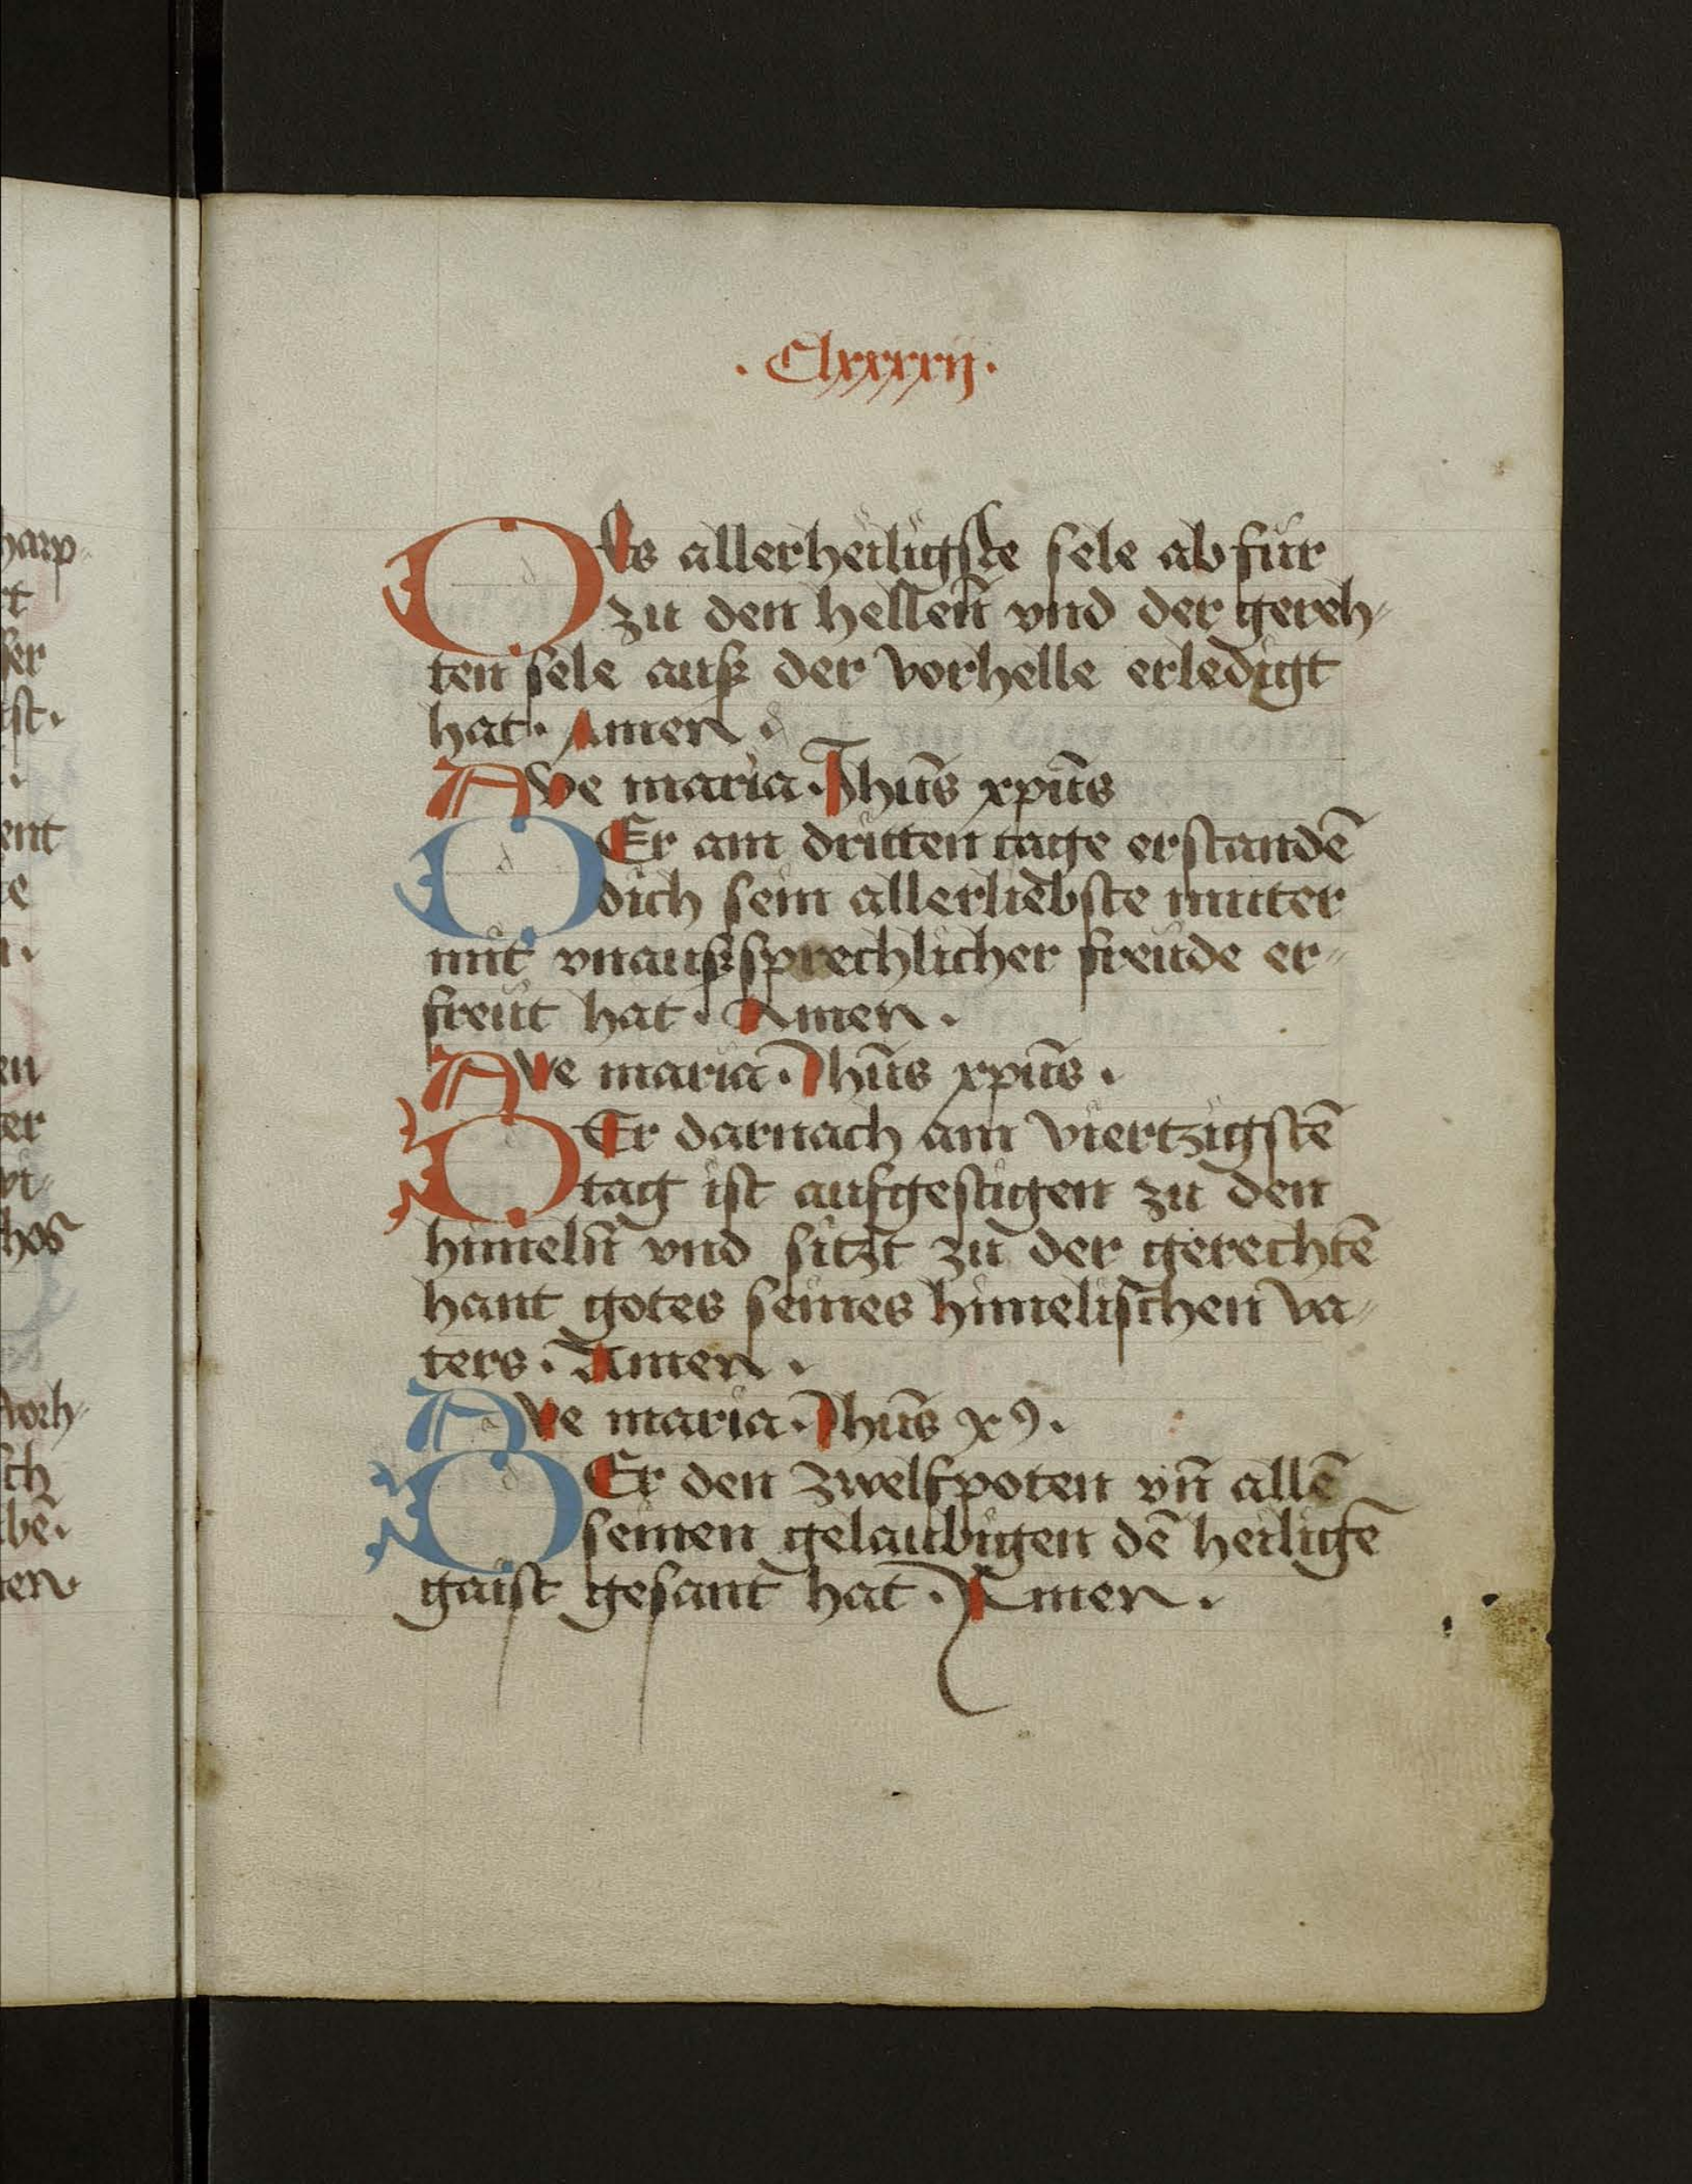 . Clxxxxij .
DEs allerheiligste sele ab fur
zu den hellen̄ vnd der gereh⸗
ten sele auß der vorhelle erledigt
hat . Amen .
AVe maria . Jhūs xpūs
DEr am dritten tage erstandē
dich sein allerliebste muter
mit vnaußsprechlicher freude er⸗
freut hat . Amen .
AVe maria . Jhūs xpūs .
DEr darnach am viertzigstē
tag ist aufgestigen zu den
himeln̄ vnd sitzt zu der gerechtē
hant gotes seines himelischen va⸗
ters . Amen .
AVe maria . Jhūs xꝰ .
DEr den zwelfpoten vn̄ allē
seinen gelaubigen dē heiligē
gaist gesant hat . Amen .